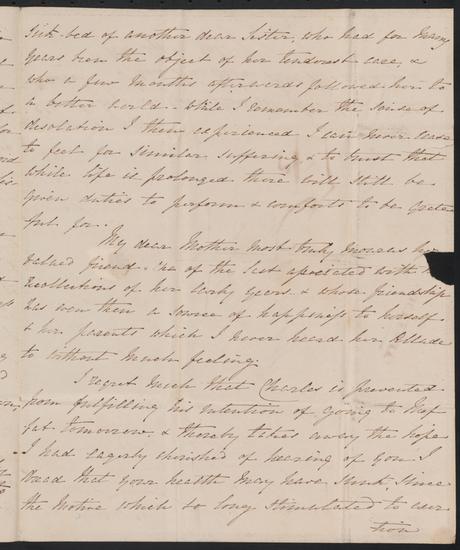 sick-bed of another dear Sister, who had for many
years been the object of her tenderest care, &
who a few months afterwards followed her to
a better world - While I remember the sense of
desolation I then experienced I can never cease
to feel for similar suffering & to trust that
while life is prolonged there will still be
given duties to perform & comforts to be grate
ful for.
My dear Mother most truly mourns her
valued friend - of the last associated with
recollections of her early years & whose friendship
was even then a source of happiness to herself
& her parents which I never heard her Allude
to without much feeling.
I regret much that Charles is prevented
from fulfilling his intention of going to
tomorrow, & thereby takes away the hope
I had eagerly cherish'd of hearing of you I
dread that your health may have sunk since
the motive which so long stimulated to exer
tion